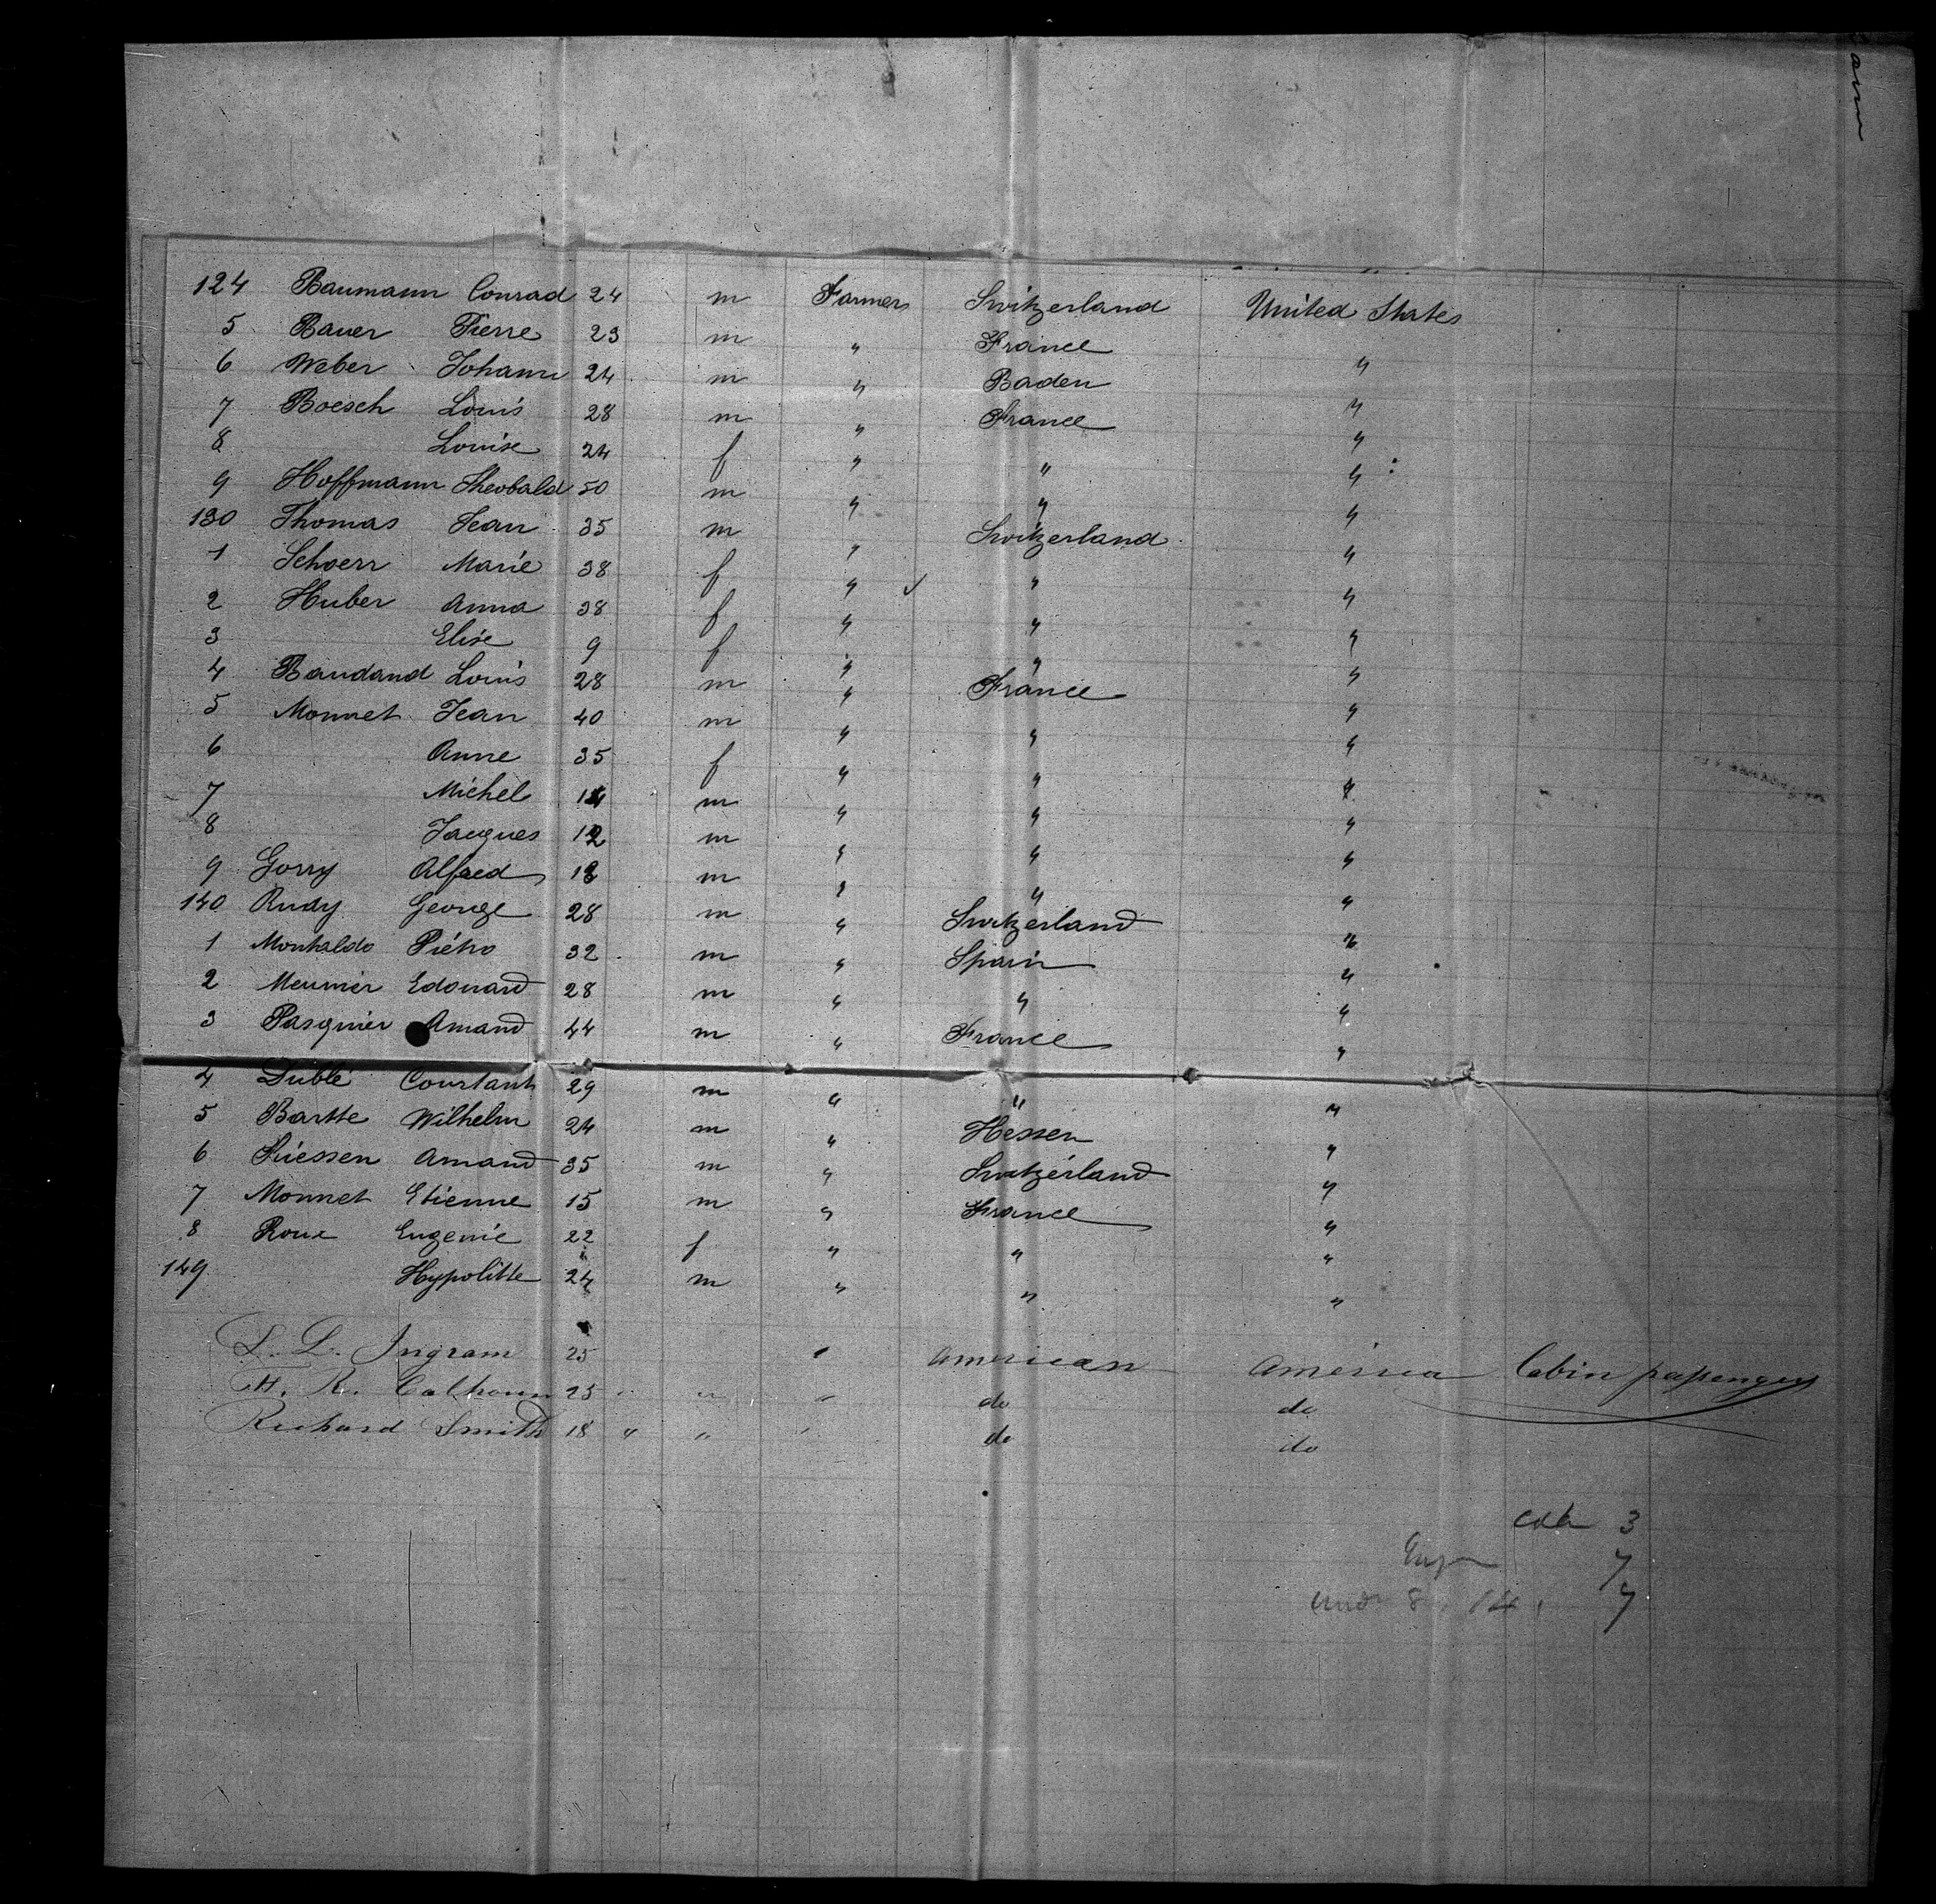 124 Baumann Conrad 24 m Farmers Switzerland United States
5 Bauer Pierre 23 m " France "
6 Weber Johann 24 m " Baden "
7 Boesch Louis 28 m " France "
8 Louise 24 f " " "
9 Hoffmann Theobald 50 m " " "
130 Thomas Jean 35 m " Switzerland "
1 Schoerr Marie 38 f " " "
2 Huber Anna 38 f " " "
3 Elise 9 f " " "
4 Baudand Louis 28 m " France "
5 Monnet Jean 40 m " " "
6 Anne 35 f " " "
7 Michel 14 m " " "
8 Jacques 12 m " " "
9 Gorry Alfred 18 m " " "
140 Rudy George 28 m " Switzerland "
1 Montaldo Piétro 32 m " Spain "
2 Meunier Edouard 28 m " " "
3 Pasquier Amand 44 m " France "
4 Dublé Constant 29 m " " "
5 Bartte Wilhelm 24 m " Hessen "
6 Amand 35 m " Switzerland "
7 Monnet Etienne 15 m " France "
8 Roux Eugenie 22 f " " "
149 Hypolitte 24 m " " "
L. L. Ingram 25 " American America Cabin passengers
H. R. Calhoun 25 " " " do do
Richard Smith 18 " " " do do
3
7
und 8. 14. 7